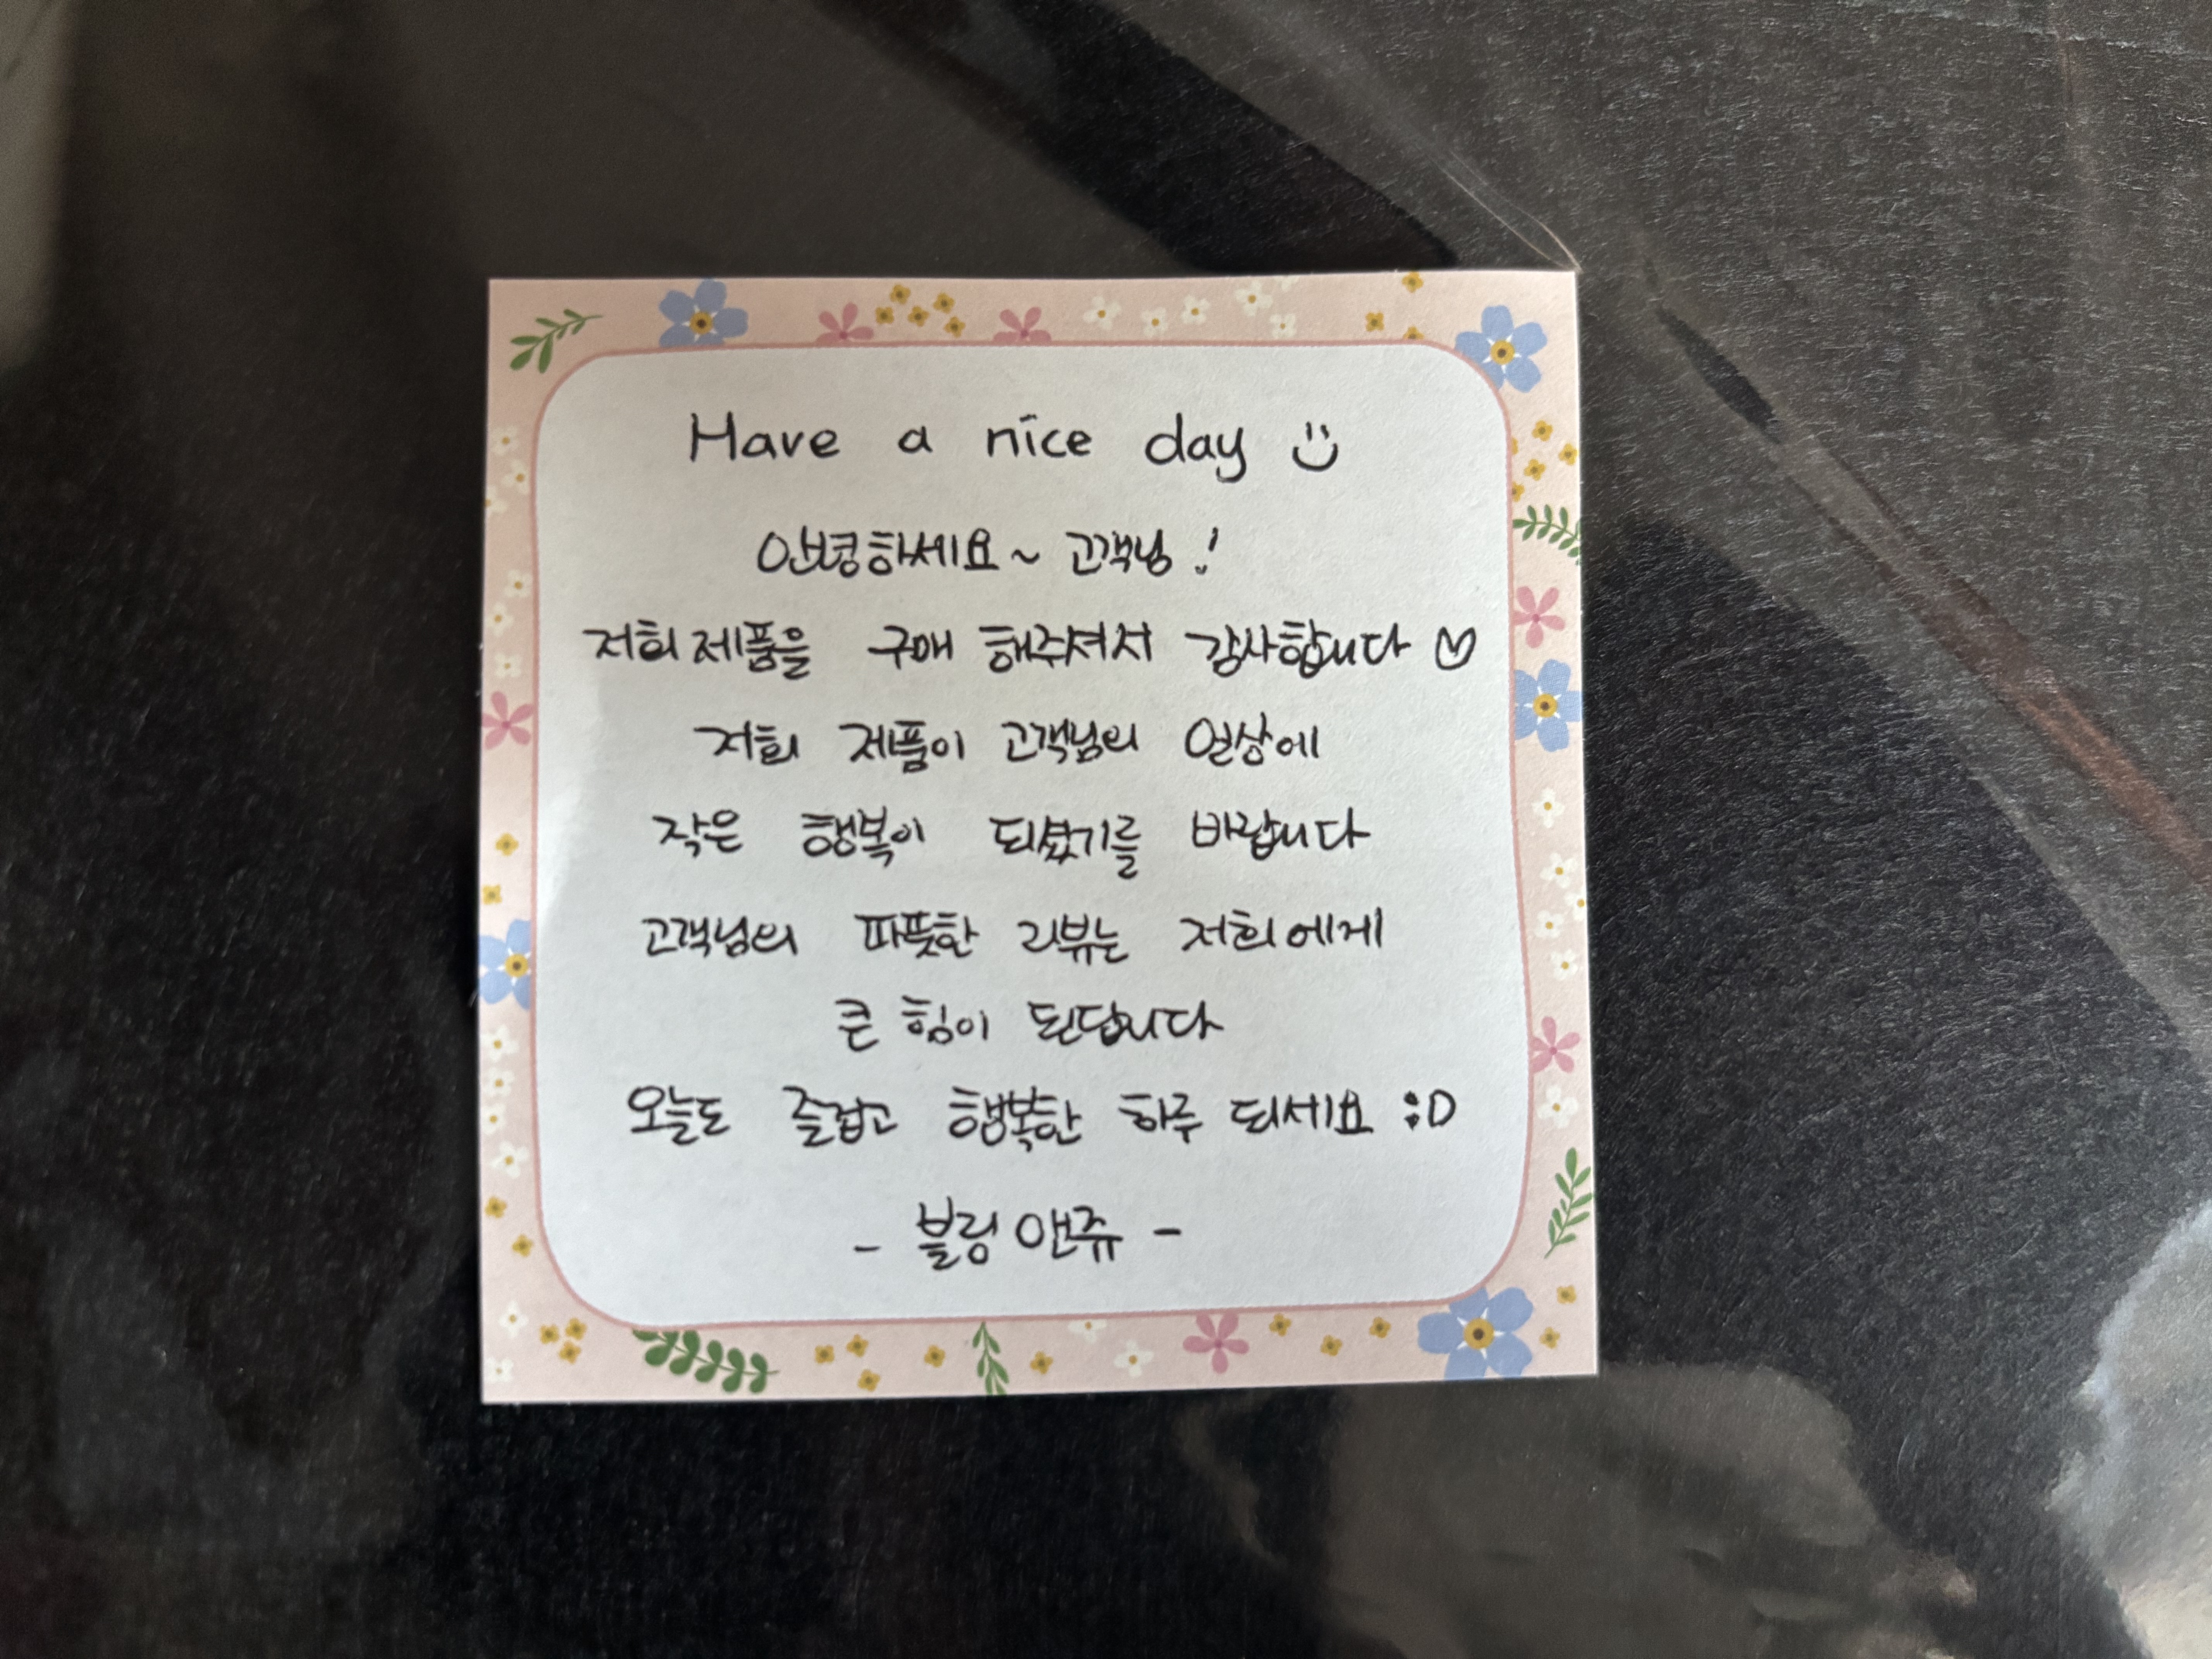 Have a nice day :)
안녕하세요~ 고객님!
저희 제품을 구매 해주셔서 감사합니다 ♡
저희 제품이 고객님의 일상에
작은 행복이 되셨기를 바랍니다
고객님의 따뜻한 리뷰는 저희에게
큰 힘이 된답니다
오늘도 즐겁고 행복한 하루 되세요 :D
- 블링앤쥬 -